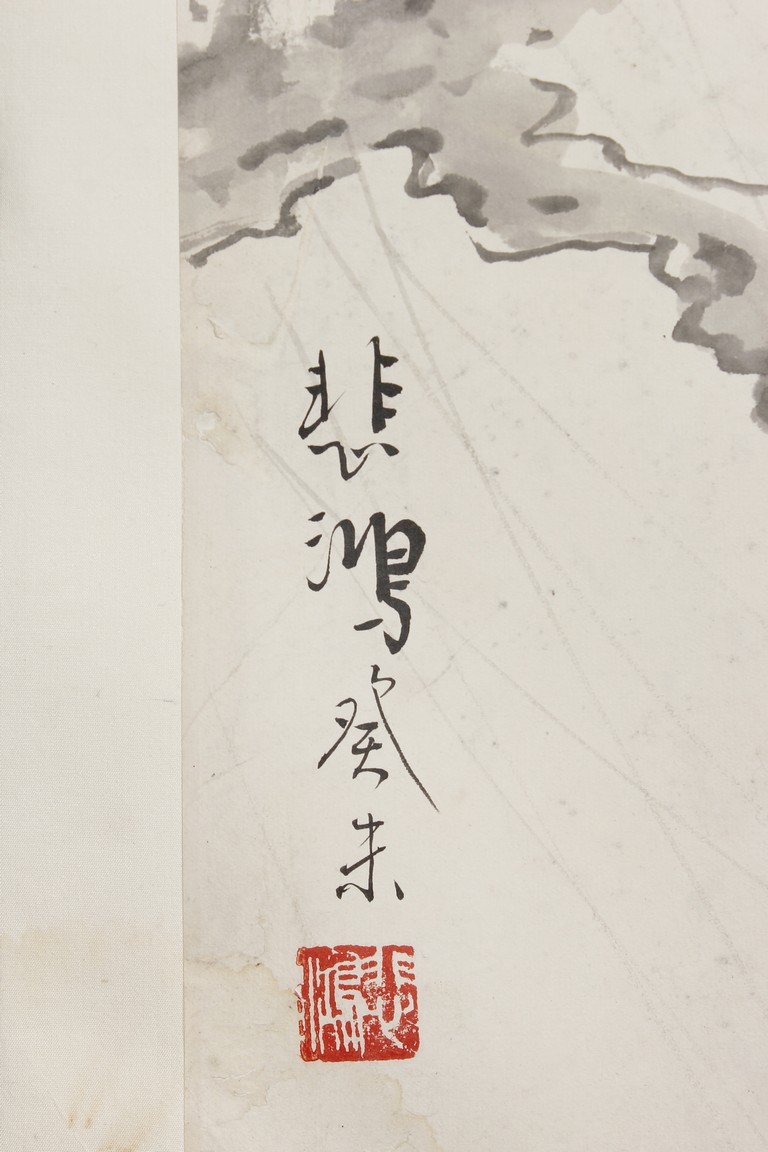 悲鴻癸未
悲鴻